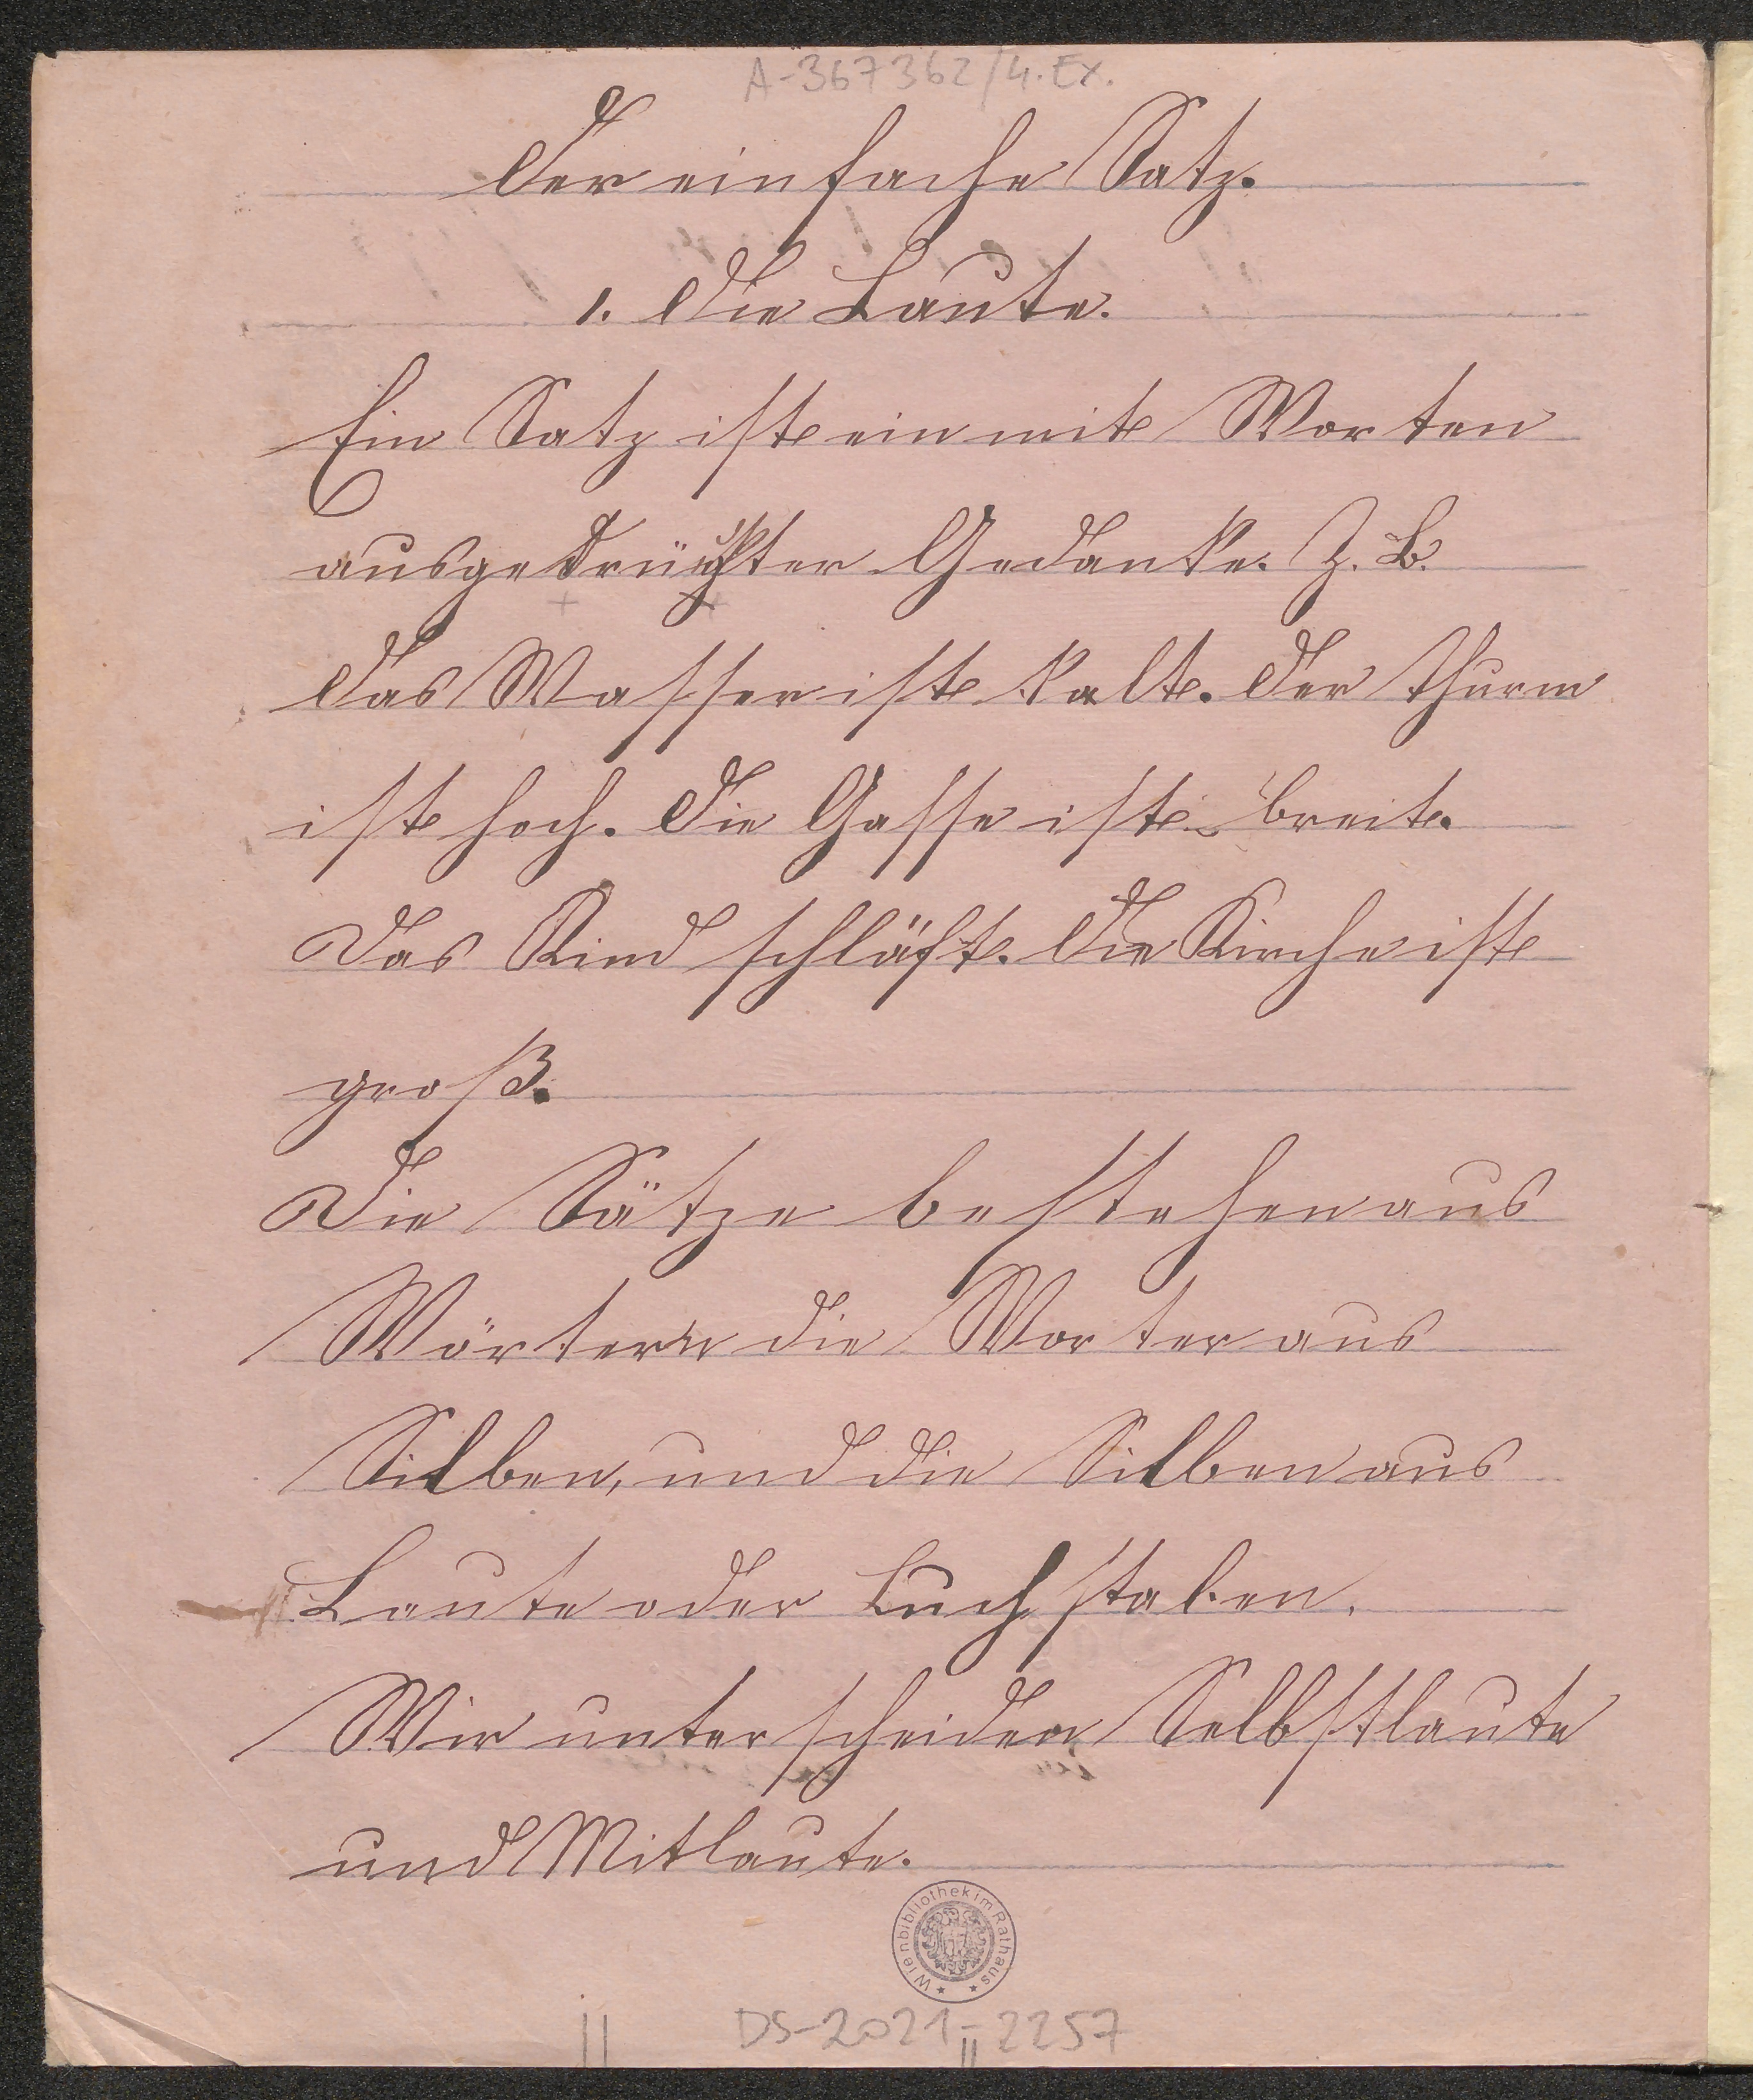 A-367362/4. Ex.
Der einfache Satz.
1. Die Laute.
Ein Satz ist ein mit Worten
ausgedrückter Gedanke. Z. B.
Das Wasser ist kalt. Der Thurm
ist hoch. Die Gasse ist breit.
Das Kind schläft. Die Kirche ist
groß.
Die Sätze bestehen aus
Wörtern die Worter aus
Silben, und die Silben aus
Laute oder Buchstaben.
Wir unterscheiden Selbstlaute
und Mitlaute.
Wienbibliothek im Rathaus
DS-2021-2257